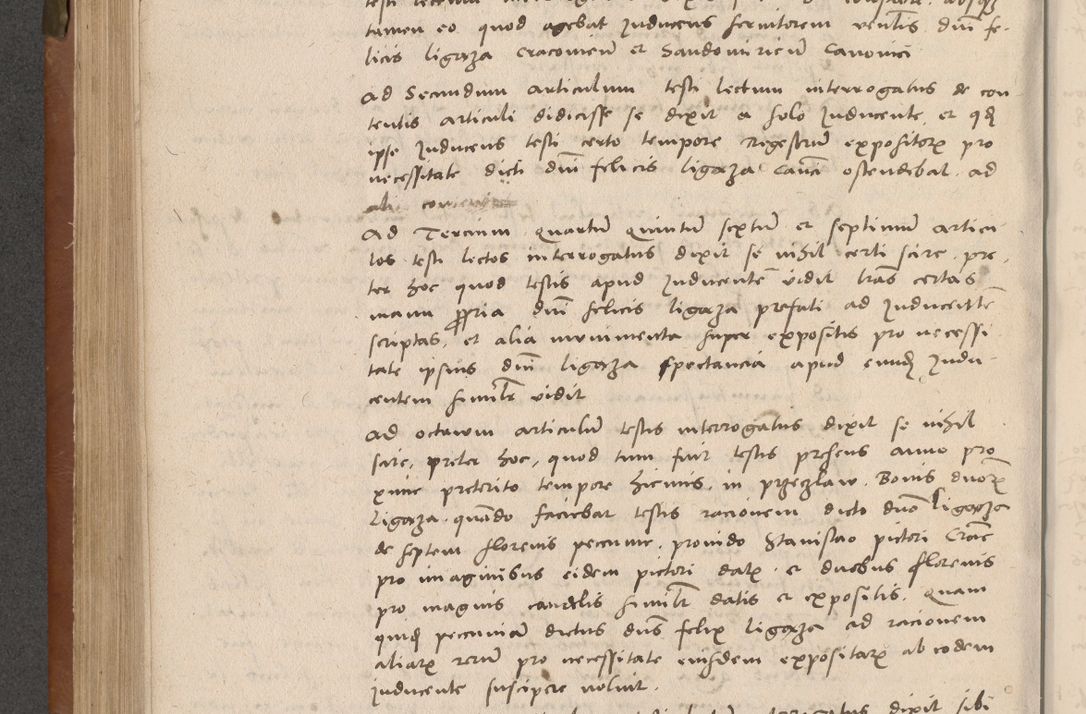 tamen eo quod agebat Inducens servitorem venlis dni fe-
licis ligaza Cracovien et Sandomirien Canonici
Ad Secundum articulum testi lectum interrogatus de con
tentis articuli didicisse se dixit a solo Inducente, et qd
ipse Inducens testi certo tempore Regestrum expositorum pro
necessitate dicti dni felicis ligaza Canci ostendebat. ad
Ad Tercium Quartum Quintum sextum et septimum articu
los testi lectos interrogatus dixit se nihil certi scire, pre-
ter hoc quod testis apud Inducentem vidit lras certas
manu propria dni felicis ligaza prefati ad Inducentem
scriptas, et alia munimenta super expositis pro necessi
tate ipsius dni ligaza spectancia apud eundem Indu-
centem similiter vidit
Ad octavum articulum testis interrogatus dixit se nihil
scire, preter hoc, quod cum fuit testis presens anno pro
xime preterito tempore hiemis in przeczlaw. Bonis dnorum
Ligaza quando faciebat testis racionem dicto dno ligaza
de septem florenis pecunie, provido Stanislao pictori Crac
pro imaginibus eidem pictori datis et duobus florenis
pro magnis candelis similiter datis et expositis. Quam
quidem pecuniam dictus dns felix Ligaza ad racionem
aliarum rerum pro necessitate eiusdem expositarum ab eodem
Inducente suscipere noluit.